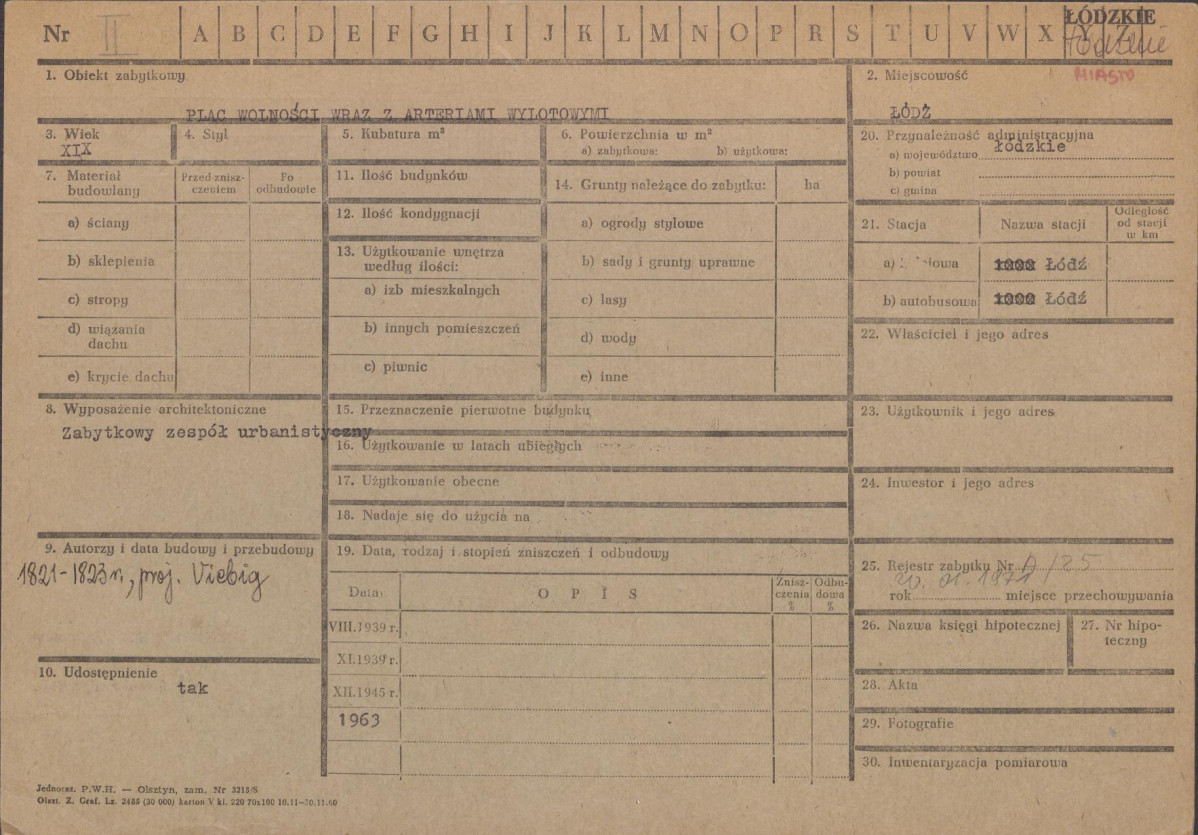 Nr II A B C D E F G H I J K L M N O P R S T U V W X Y Z
ŁÓDZKIE
MIASTO
1. Obiekt zabytkowy
PLAC WOLNOŚCI WRAZ Z ARTERIAMI WYLOTOWYMI
2. Miejscowość
ŁÓDŹ
3. Wiek
XIX
4. Styl
5. Kubatura m³
6. Powierzchnia w m²
a) zabytkowa: b) użytkowa:
20. Przynależność administracyjna
a) województwo łódzkie
b) powiat
c) gmina
7. Materiał budowlany
Przed zniszczeniem
Po odbudowie
a) ściany
b) sklepienia
c) stropy
d) wiązania dachu
e) krycie dachu
11. Ilość budynków
12. Ilość kondygnacji
13. Użytkowanie wnętrza według ilości:
a) izb mieszkalnych
b) innych pomieszczeń
c) piwnic
14. Grunty należące do zabytku: ha
a) ogrody stylowe
b) sady i grunty uprawne
c) lasy
d) wody
e) inne
21. Stacja
Nazwa stacji
Odległość od stacji w km
a) Łódź
b) autobusowa Łódź
22. Właściciel i jego adres
8. Wyposażenie architektoniczne
Zabytkowy zespół urbanistyczny
15. Przeznaczenie pierwotne budynku
16. Użytkowanie w latach ubiegłych
17. Użytkowanie obecne
18. Nadaje się do użycia na
23. Użytkownik i jego adres
24. Inwestor i jego adres
9. Autorzy i data budowy i przebudowy
1821-1823 r., proj. Viebig
19. Data, rodzaj i stopień zniszczeń i odbudowy
Data
OPIS
Zniszczenia %
Odbudowa %
VIII.1939 r.
XI.1939 r.
XII.1945 r.
1963
25. Rejestr zabytku Nr A/85
20. 01. 1971
rok miejsce przechowywania
26. Nazwa księgi hipotecznej
27. Nr hipoteczny
10. Udostępnienie
tak
28. Akta
29. Fotografie
30. Inwentaryzacja pomiarowa
Jednoraz. P.W.H. — Olsztyn, zam. Nr 3215/S
Olszt. Z. Graf. Lz. 2455 (30 000) karton V kl. 220 70x100 10.11—30.11.60